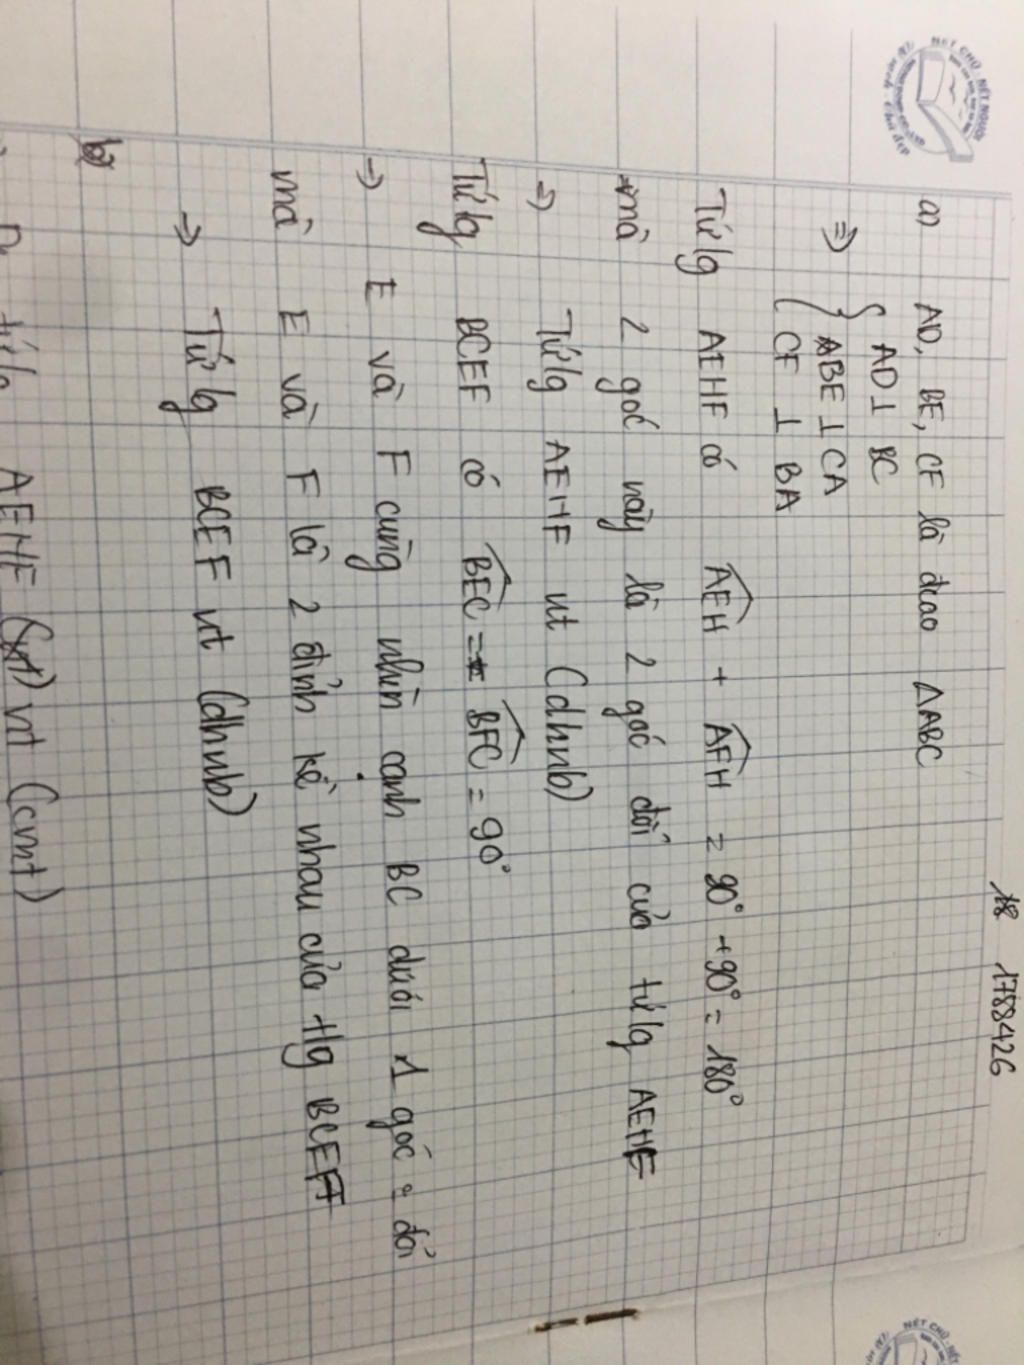 18 1788426
a) AD, BE, CF là đcao ΔABC
⇒ { AD ⊥ BC
BE ⊥ CA
CF ⊥ BA
Tứ lg AEHF có AEH + AFH = 90° + 90° = 180°
mà 2 góc này là 2 góc đối của tứ lg AEHF
⇒ Tứ lg AEHF nt (dhnb)
Tứ lg BCEF có BEC = BFC = 90°
→ E và F cùng nhìn cạnh BC dưới 1 góc = đổi
mà E và F là 2 đỉnh kề nhau của tlg BCEF
→ Tứ lg BCEF nt (dhnb)
b)
AEHF nt (cmt)
NÉT CHỮ - NẾT NGƯỜI